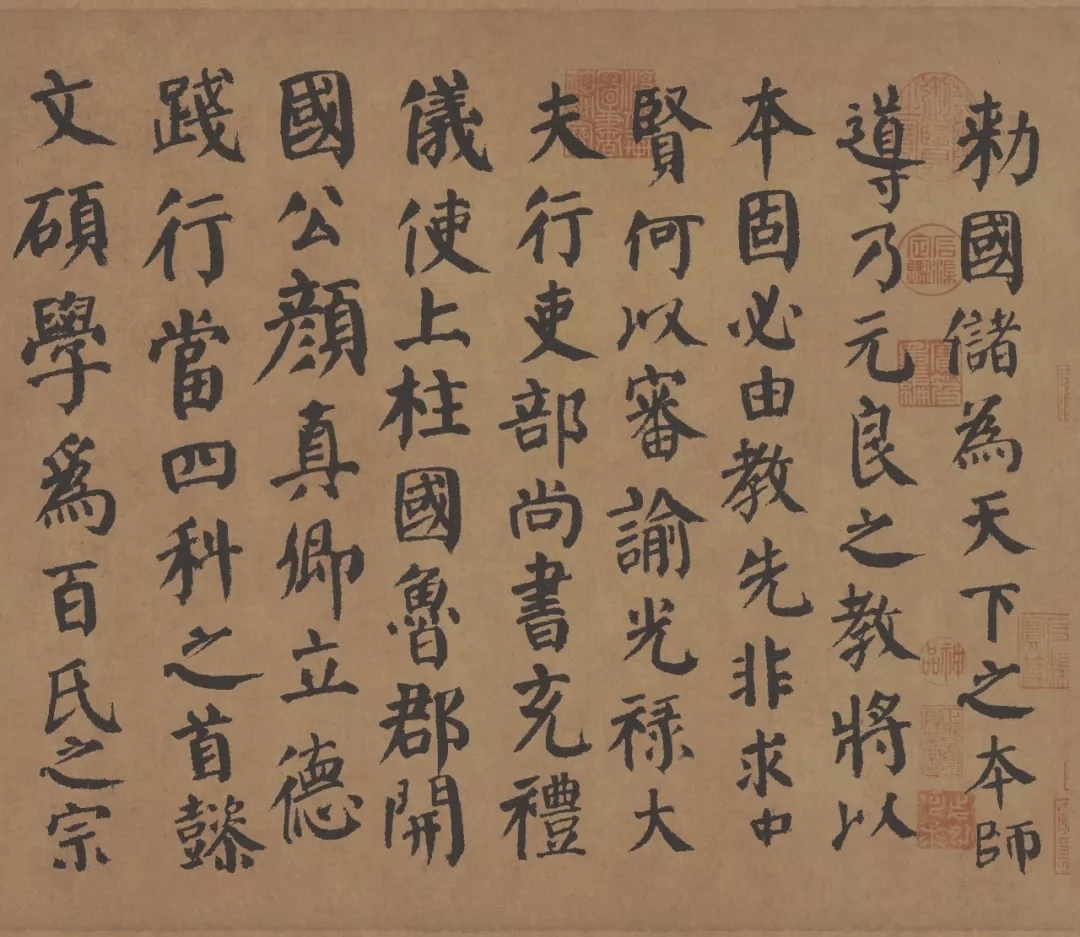 勑國儲為天下之本師
導乃元良之教將以
本固必由教先非求中
賢何以審諭光祿大
夫行吏部尚書充禮
儀使上柱國魯郡開
國公顏真卿立德
踐行當四科之首懿
文碩學爲百氏之宗
神品